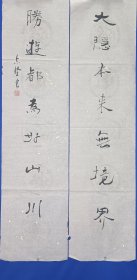 大隱本來無境界
勝遊都為山川